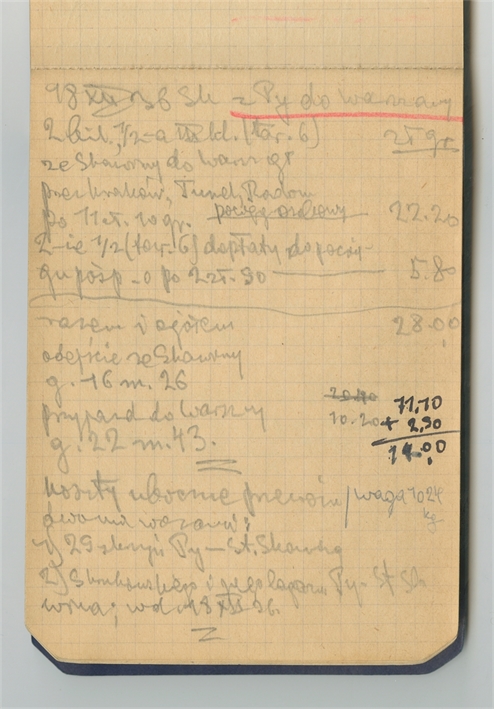 18 XII 36 Sk z Py do Warszawy
2 bil. 1/2-a III kl. (tar. 6) zł gr
ze Skawiny do Warsz gł
przez Kraków, Tunel, Radom
po 11 zł. 10 gr. pociąg osobowy 22.20
2-ie 1/2 (tar. 6) dopłaty do pocią-
gu pośp. o po 2 zł. 90 5.80
razem i ogółem 28.00
odejście ze Skawiny
g. 16 m. 26
przyjazd do Warszawy
g. 22 m. 43.
10.20
11,10
+ 2,90
14.00
koszty uboczne przewozu / waga 1024 kg
dwoma wozami:
1) 29 skrzyń Py – St. Skawina
2) i jego Py – St Ska
wina; w d. 18 XII 36.